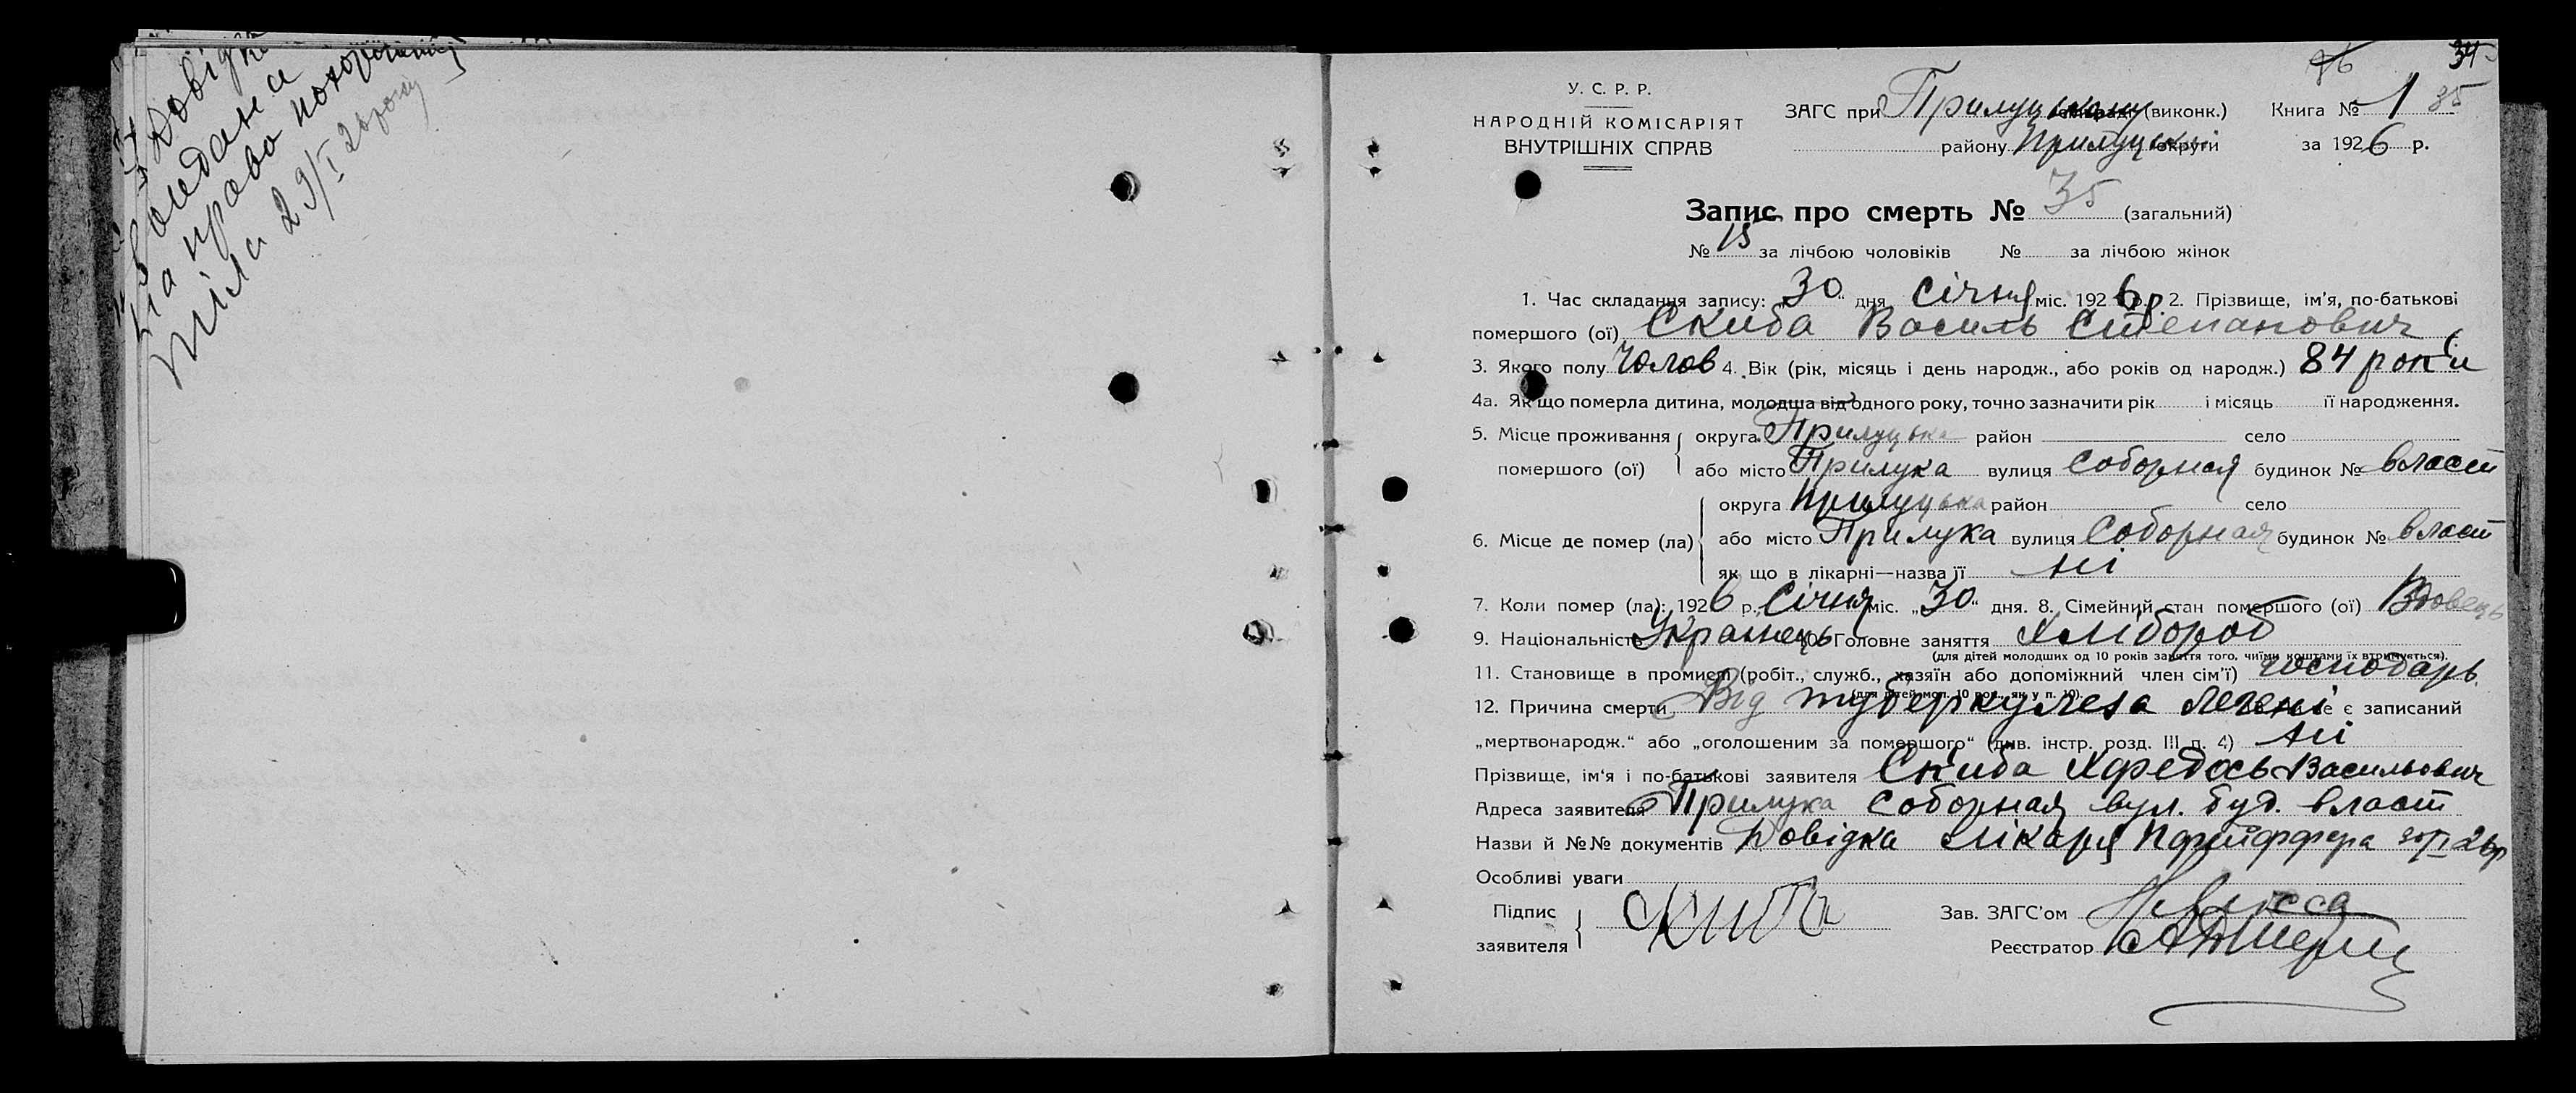 Довідка
видана
на право похорони
тіла 29/I 26 року
34
36
35
У. С. Р. Р.
НАРОДНІЙ КОМІСАРІЯТ
ВНУТРІШНІХ СПРАВ
ЗАГС при Прилуцькому (виконк.) Книга № 1
району Прилуцьк округи за 1926 р.
Запис про смерть № 35 (загальний)
№ 15 за лічбою чоловіків № за лічбою жінок
1. Час складання запису: „30“ дня Січня міс. 1926 р. 2. Прізвище, ім'я, по-батькові
помершого (ої) Скиба Василь Степанович
3. Якого полу Чолов 4. Вік (рік, місяць і день народж., або років од народж.) 84 роки
4а. Як що померла дитина, молодша від одного року, точно зазначити рік і місяць її народження.
5. Місце проживання помершого (ої) округа Прилуцька район село
або місто Прилука вулиця Соборная будинок № власн
6. Місце де помер (ла) округа Прилуцька район село
або місто Прилука вулиця Соборная будинок № власн
як що в лікарні—назва її ні
7. Коли помер (ла): 1926 р. Січня міс. „30“ дня. 8. Сімейний стан помершого (ої) Вдовець
9. Національність Українець 10. Головне заняття Хлібороб
(для дітей молодших од 10 років заняття того, чиїми коштами їх втримується).
11. Становище в промислі (робіт., служб., хазяїн або допоміжний член сім'ї) господарь
(для дітей мол. 10 рок., як у п. 10).
12. Причина смерти Від туберкулеза легені не є записаний
„мертвонародж.“ або „оголошеним за помершого“ (див. інстр. розд. III п. 4) ні
Прізвище, ім'я і по-батькові заявителя Скиба Хфедось Васильович
Адреса заявителя Прилука Соборная вул. буд. власн
Назви й №№ документів Довідка лікаря Пфейффера 30/I 26р
Особливі уваги
Підпис заявителя Скиба
Зав. ЗАГС'ом
Реєстратор